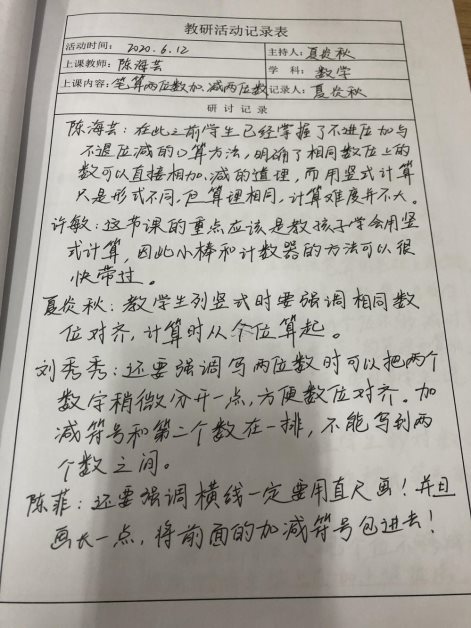 教研活动记录表
活动时间: 2020.6.12 主持人: 夏炎秋
上课教师: 陈海芸 学 科: 数学
上课内容: 笔算两位数加、减两位数 记录人: 夏炎秋
研 讨 记 录
陈海芸: 在此之前学生已经掌握了不进位加与
不退位减的口算方法, 明确了相同数位上的
数可以直接相加、减的道理, 而用竖式计算
只是形式不同, 但算理相同, 计算难度并不大。
许敏: 这节课的重点应该是教孩子学会用竖
式计算, 因此小棒和计数器的方法可以很
快带过。
夏炎秋: 教学生列竖式时要强调相同数
位对齐, 计算时从个位算起。
刘秀秀: 还要强调写两位数时可以把两个
数字稍微分开一点, 方便数位对齐。加
减符号和第二个数在一排, 不能写到两
个数之间。
陈菲: 还要强调横线一定要用直尺画! 并且
画长一点, 将前面的加减符号包进去!